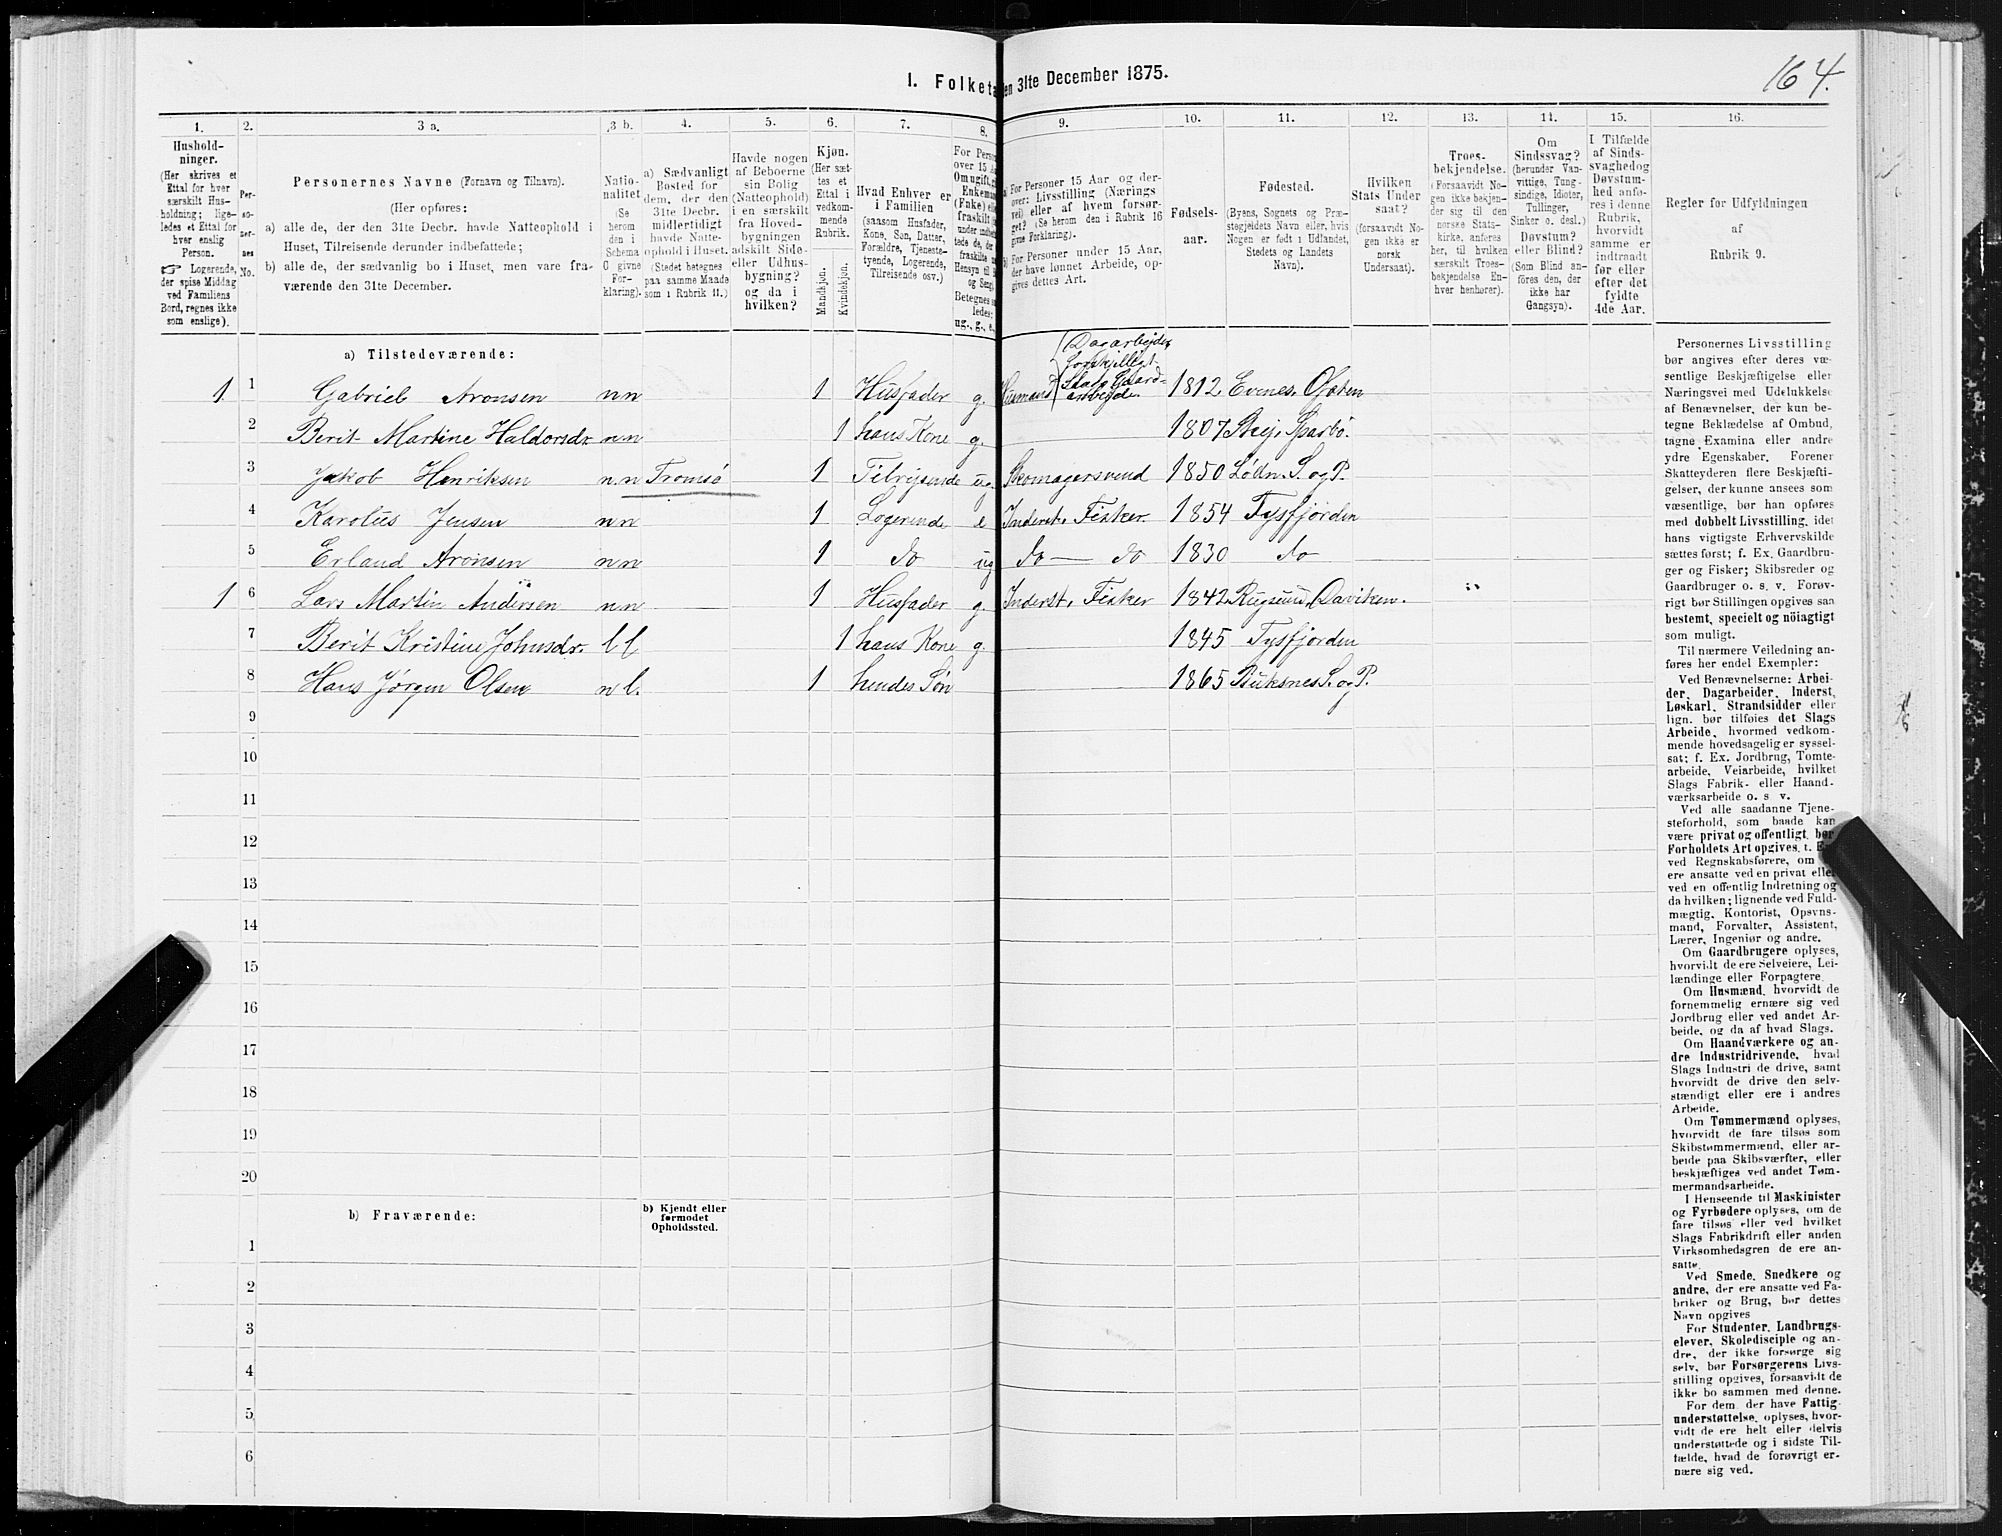 164.
I. Folketa en 31te December 1875.
1. 2. 3 a. 3 b. 4. 5. 6. 7. 8. 9. 10. 11. 12. 13. 14. 15. 16.
Hushold-
ninger.
(Her skrives et
Ettal for hver
særskilt Hus-
holdning; lige-
ledes et Ettal for
hver enslig
Person.
☞ Logerende,
der spise Middag
ved Familiens
Bord, regnes ikke
som enslige).
Per-
so-
ner-
nes
No.
Personernes Navne (Fornavn og Tilnavn).
(Her opføres:
a) alle de, der den 31te Decbr. havde Natteophold i
Huset, Tilreisende derunder indbefattede;
b) alle de, der sædvanlig bo i Huset, men vare fra-
værende den 31te December.
Natio-
nalitet.
(Se
herom
den i
Schema
G givne
For-
klaring).
a) Sædvanligt
Bosted for
dem, der den
31te Decbr.
midlertidigt
havde Natte-
ophold i Huset.
(Stedet betegnes
paa samme Maade
som i Rubrik 11.)
Havde nogen
af Beboerne
sin Bolig
(Natteophold)
i en særskilt
fra Hoved-
bygningen
adskilt Side-
eller Udhus-
bygning?
og da i
hvilken?
Kjøn.
(Her sæt-
tes et
Ettal i
vedkom-
mende
Rubrik.
Mandkjøn.
Kvindekjøn.
Hvad Enhver er
i Familien
(saasom Husfader,
Kone, Søn, Datter,
Forældre, Tjeneste-
tyende, Logerende,
Tilreisende osv.)
For Perso
over 15 A
Om ugift, g
Enkeman
(Enke) ell
fraskilt
under indbe
tede de, de
fraskilte
Hensyn til B
og Seng
Betegnes s
ledes:
ug., g., e.,
a) For Personer 15 Aar og der-
over: Livsstilling (Nærings
vei) eller af hvem forsør-
get? (Se herom den i Rubrik 16
givne Forklaring).
b) For Personer under 15 Aar,
der have lønnet Arbeide, op-
gives dettes Art.
Fødsels-
aar.
Fødested.
(Byens, Sognets og Præ-
stegjeldets Navn eller, hvis
Nogen er født i Udlandet,
Stedets og Landets
Navn).
Hvilken
Stats Under
saat?
(forsaavidt No-
gen ikke er
norsk
Undersaat).
Troes-
bekjendelse.
(Forsaavidt No-
gen ikke bekjen-
der sig til den
norske Stats-
kirke, anføres
her, til hvilken
særskilt Troes-
bekjendelse En-
hver henhører).
Om
Sindssvag?
(herunder Van-
vittige, Tung-
sindige, Idioter,
Tullinger,
Sinker o. desl.)
Døvstum?
eller Blind?
(Som Blind an-
føres den, der
ikke har
Gangsyn).
I Tilfælde
af Sinds-
svaghed og
Døvstum-
hed anfø-
res i denne
Rubrik,
hvorvidt
samme er
indtraadt
før eller
efter det
fyldte
4de Aar.
Regler for Udfyldningen
af
Rubrik 9.
a) Tilstedeværende:
1 1 Gabriel Aronsen n n 1 Husfader g. Husmand (Dagarbeider
forskjelligt
Slags Gaard-
arbeide. 1812 Evenes. Ofoten
2 Berit Martine Haldorsdr. n n 1 hans Kone g. 1807 Sparbo.
3 Jakob Henriksen n n Tromsö 1 Tilreisende ug. Skomagersvend 1850 Lódn. S. og P.
4 Karolus Jensen n n 1 Logerende e Inderst, Fisker. 1854 Tysfjorden
5 Erland Aronsen n n 1 do ug do — do 1830 do
1 6 Lars Martin Andersen n n 1 Husfader g. Inderst, Fisker 1842 Rugsund, Daviken.
7 Berit Kristine Johnsdr. l l 1 hans Kone g. 1845 Tysfjorden
8 Hans Jørgen Olsen n l. 1 hendes Søn 1865 Buksnes S. og P.
9
10
11
12
13
14
15
16
17
18
19
20
b) Fraværende:
b) Kjendt eller
formodet
Opholdssted.
1
2
3
4
5
6
Personernes Livsstilling
bør angives efter deres væ-
sentlige Beskjæftigelse eller
Næringsvei med Udelukkelse
af Benævnelser, der kun be-
tegne Beklædelse af Ombud,
tagne Examina eller andre
ydre Egenskaber. Forener
Skatteyderen flere Beskjæfti-
gelser, der kunne ansees som
væsentlige, bør han opføres
med dobbelt Livsstilling, idet
hans vigtigste Erhvervskilde
sættes først; f. Ex. Gaardbru-
ger og Fisker; Skibsreder og
Gaardbruger o. s. v. Forøv-
rigt bør Stillingen opgives saa
bestemt, specielt og nöiagtigt
som muligt.
Til nærmere Veiledning an-
føres her endel Exempler:
Ved Benævnelserne: Arbei-
der, Dagarbeider, Inderst,
Løskarl, Strandsidder eller
lign. bør tilføies det Slags
Arbeide, hvormed vedkom-
mende hovedsagelig er syssel-
sat; f. Ex. Jordbrug, Tomte-
arbeide, Veiarbeide, hvilket
Slags Fabrik- eller Haand-
værksarbeide o. s. v.
Ved alle saadanne Tjene-
steforhold, som baade kan
være privat og offentligt, bør
Forholdets Art opgives, f. E
ved Regnskabsførere, om
ere ansatte ved en privat eller
ved en offentlig Indretning og
da hvilken; lignende ved Fuld-
mægtig, Kontorist, Opsyns-
mand, Forvalter, Assistent,
Lærer, Ingeniør og andre.
Om Gaardbrugere oplyses,
hvorvidt de ere Selveiere, Lei-
lændinge eller Forpagtere
Om Husmænd, hvorvidt de
fornemmelig ernære sig ved
Jordbrug eller ved andet Ar-
beide, og da af hvad Slags.
Om Haandværkere og an-
dre Industridrivende, hvad
Slags Industri de drive, samt
hvorvidt de drive den selv-
stændigt eller ere i andres
Arbeide.
Om Tømmermænd oplyses,
hvorvidt de fare tilsøs som
Skibstømmermænd, eller ar-
beide paa Skibsværfter, eller
beskjæftiges ved andet Tøm-
mermandsarbeide.
I Henseende til Maskinister
og Fyrbødere oplyses, om de
fare tilsøs eller ved hvilket
Slags Fabrikdrift eller anden
Virksomhedsgren de ere an-
satte.
Ved Smede, Snedkere og
andre, der ere ansatte ved Fa-
briker og Brug, bør dettes
Navn opgives
For Studenter, Landbrugs-
elever, Skoledisciple og an-
dre, der ikke forsørge sig
selv, bør Forsørgerens Livs-
stilling opgives, forsaavidt de
ikke bo sammen med denne.
For dem, der have Fattig-
understøttelse, oplyses, hvor-
vidt de ere helt eller delvis
understøttede og i sidste Til-
fælde, hvad de forøvrigt er-
nære sig ved.